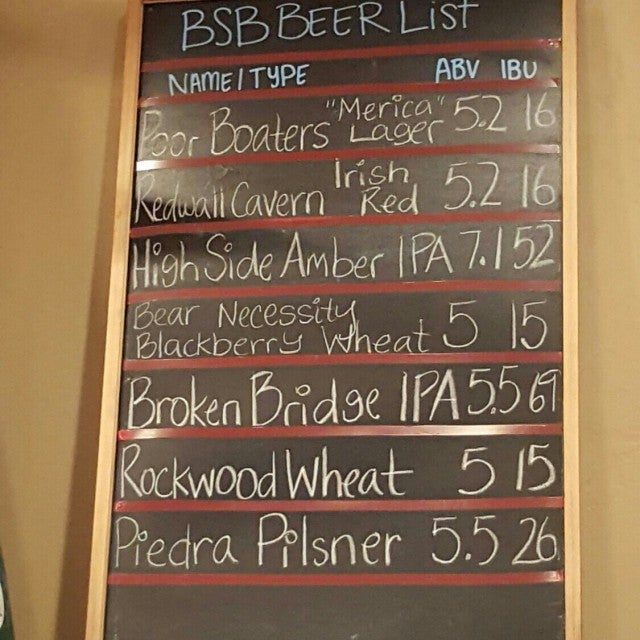 BSB BEER LIST
NAME / TYPE ABV IBU
Poor Boaters "Merica" Lager 5.2 16
Redwall Cavern Irish Red 5.2 16
High Side Amber IPA 7.1 52
Bear Necessity
Blackberry Wheat 5 15
Broken Bridge IPA 5.5 69
Rockwood Wheat 5 15
Piedra Pilsner 5.5 26